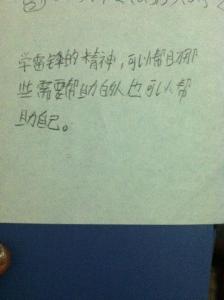 学雷锋的精神，可以帮助那
些需要帮助的人也可以帮
助自己。